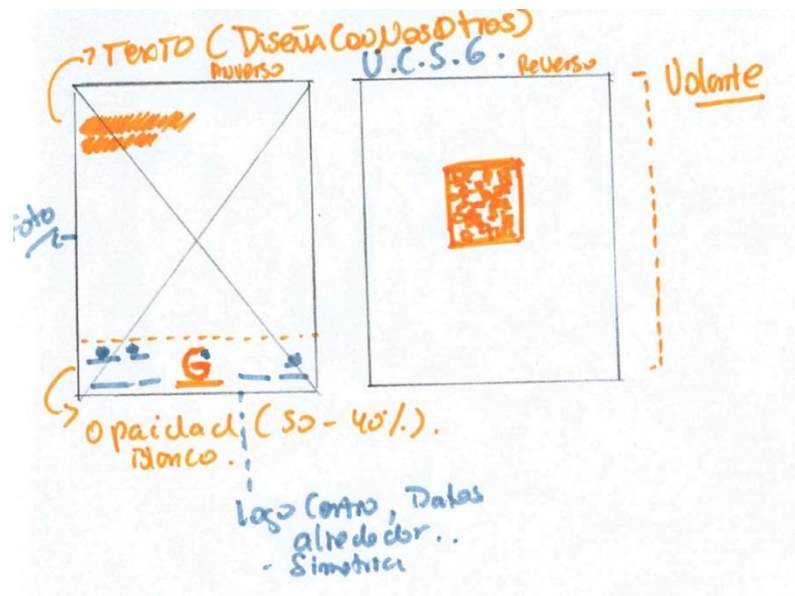 TEXTO (Diseña Con Nosotros)
U.C.S.G.
Anverso
Reverso
Volante
Foto
G
Opacidad (50-40%).
Blanco.
Logo Centro, Datos
alrededor..
- Simetria